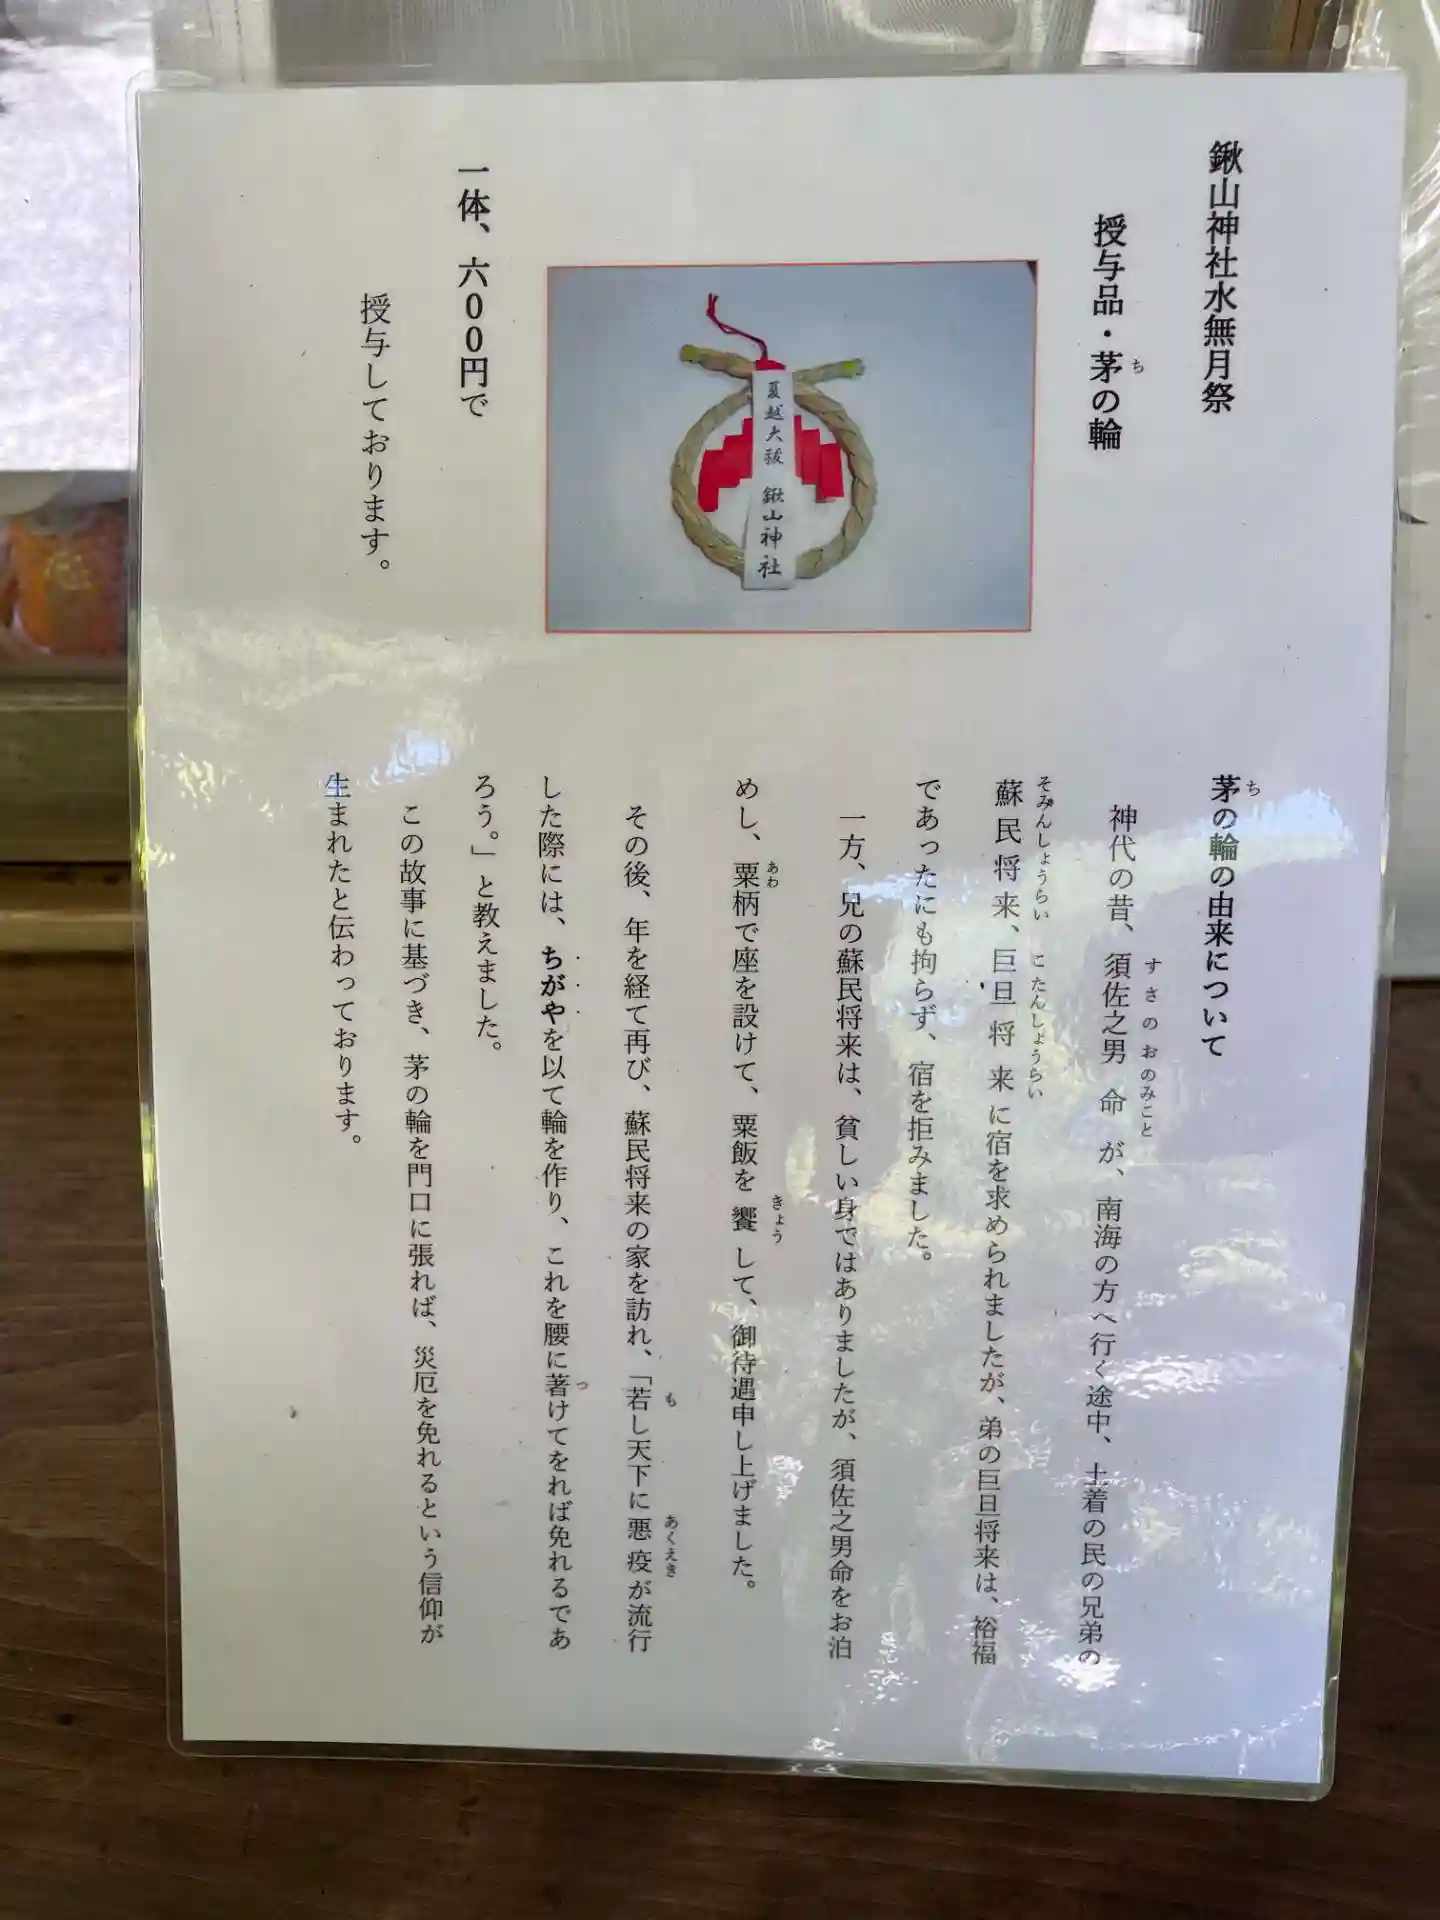 鍬山神社水無月祭
授与品・茅の輪
ち
夏越大祓 鍬山神社
一体、六00円で
授与しております。
茅の輪の由来について
ち
神代の昔、須佐之男命が、南海の方へ行く途中、土着の民の兄弟の
すさのおのみこと
蘇民将来、巨旦将来に宿を求められましたが、弟の巨旦将来は、裕福
そみんしょうらい こたんしょうらい
であったにも拘らず、宿を拒みました。
一方、兄の蘇民将来は、貧しい身ではありましたが、須佐之男命をお泊
めし、粟柄で座を設けて、粟飯を饗して、御待遇申し上げました。
あわ きょう
その後、年を経て再び、蘇民将来の家を訪れ、「若し天下に悪疫が流行
も あくえき
した際には、ちがやを以て輪を作り、これを腰に著けてをれば免れるであ
つ
ろう。」と教えました。
この故事に基づき、茅の輪を門口に張れば、災厄を免れるという信仰が
生まれたと伝わっております。